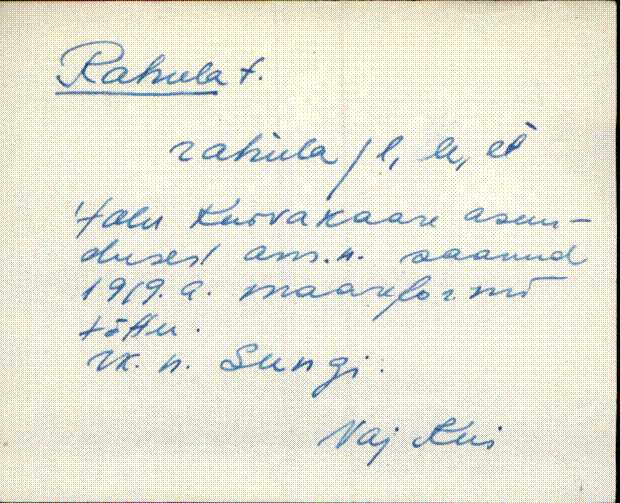 Rahula t.
rahula /l, le, èt
talu Kurvakaare asun-
duses/ am.n. saanud
1919.a. maareformi
tõttu.
rk. n. Sungi.
Vaj Kii